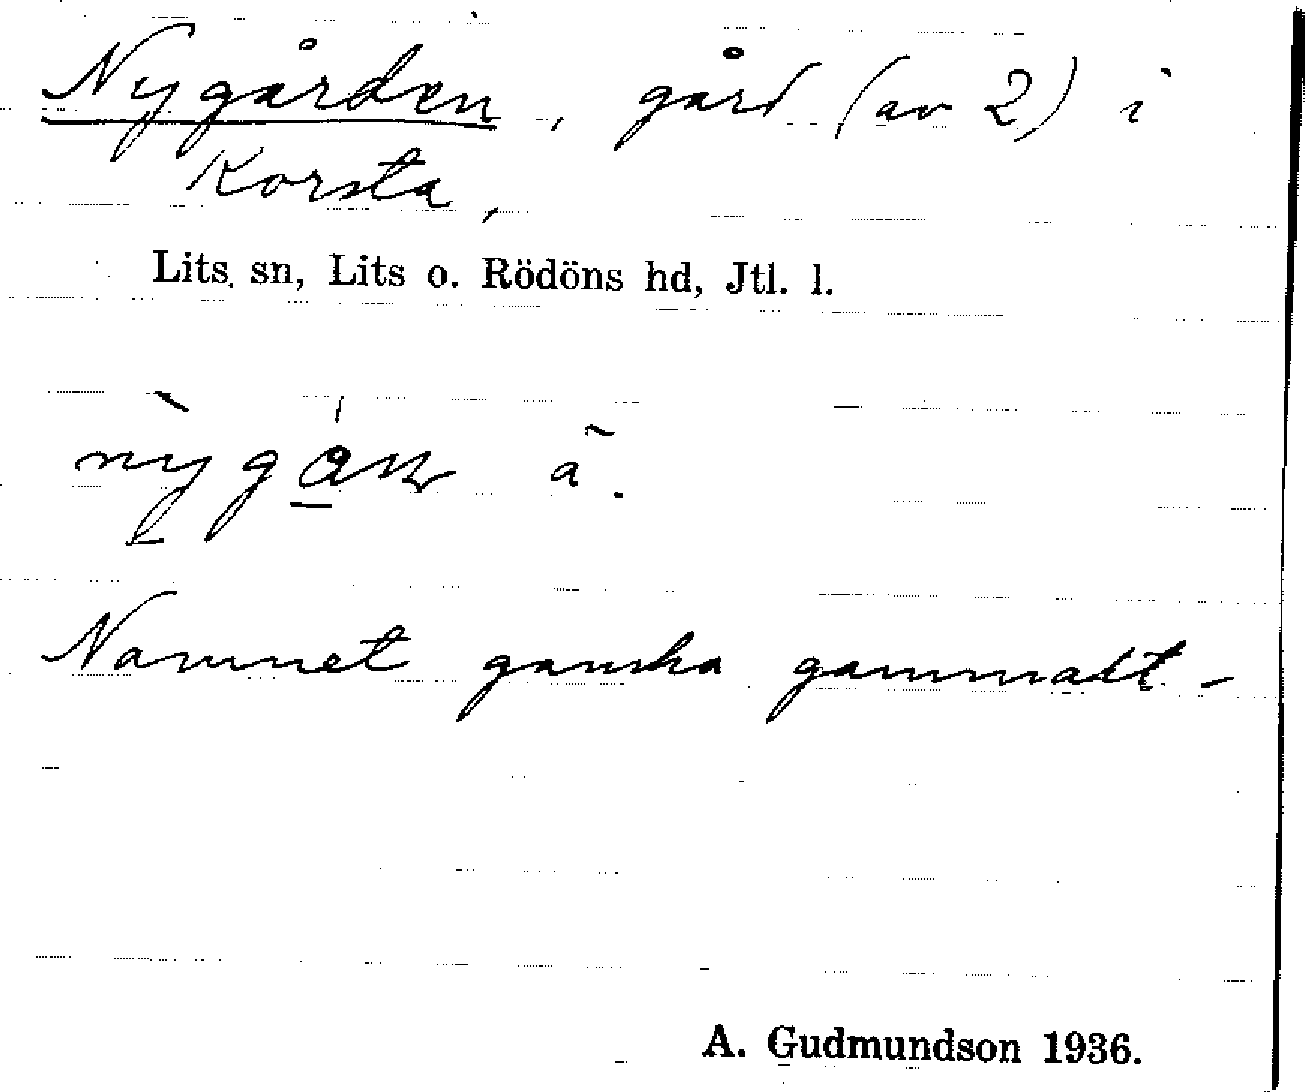 Nygården, gård (av 2) i
Korsta,
Lits sn, Lits o. Rödöns hd, Jtl. l.
ã.
Namnet ganska gammalt.
A. Gudmundson 1936.